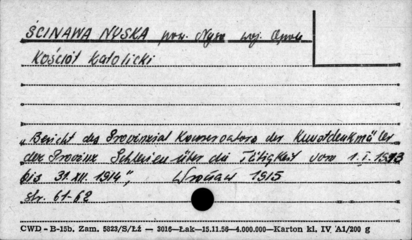 ŚCINAWA NYSKA pow. Nysa woj. Opole
Kościół katolicki
„Bericht des Provinzial Konservators der Kunstdenkmäler
der Provinz Schlesien über die Tätigkeit vom 1.I.1913
bis 31.XII.1914”, Wrocław 1915
str. 61-62
CWD - B-15b. Zam. 5823/S/Łż — 3016—Łak—15.11.56—4.000.000—Karton kl. IV A1/200 g